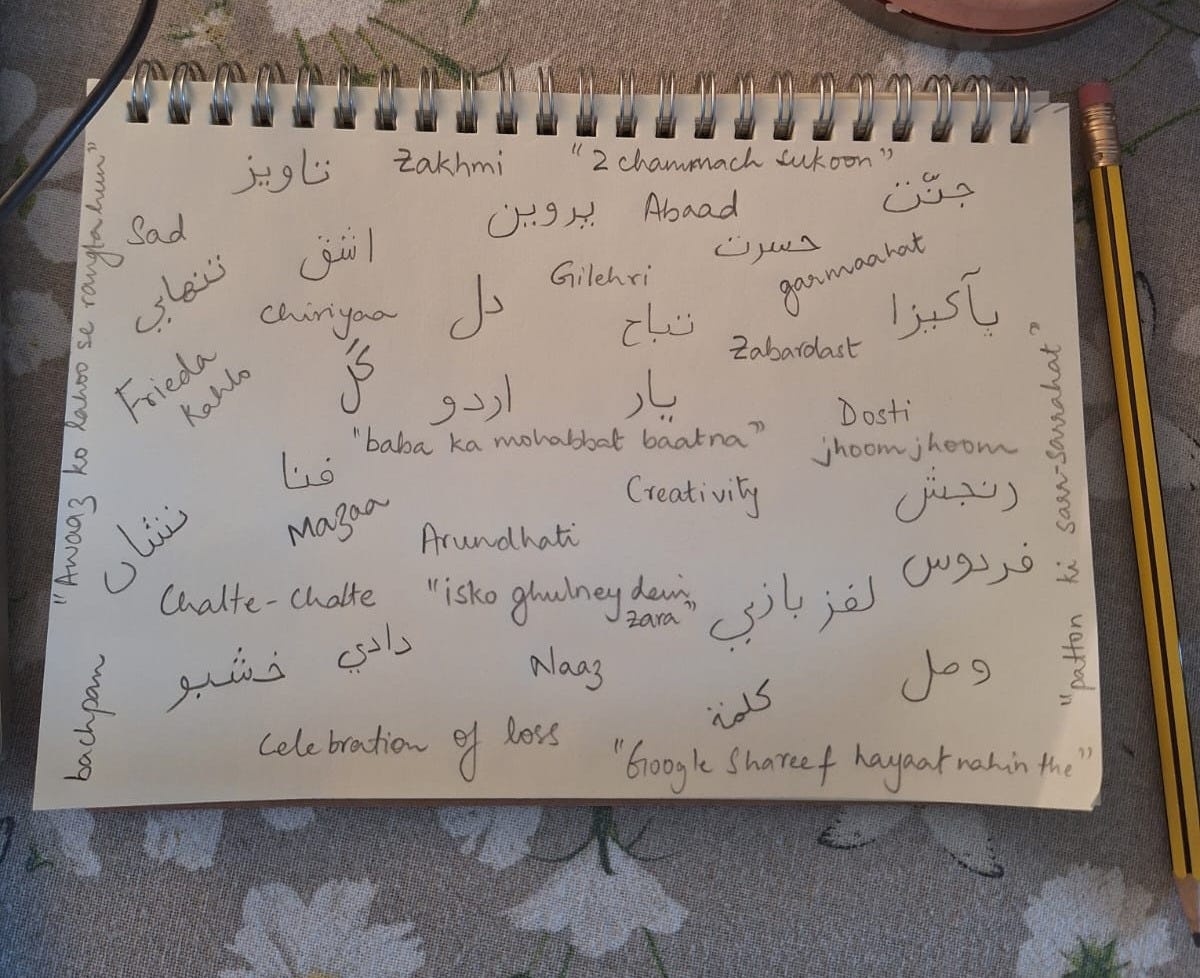 تاویز Zakhmi "2 chammach sukoon"
پروین Abaad جنّت
Sad اشق حسرت
تنهايي Gilehri garmaahat
Chiriyaa دل تباح پآکیزا
Zabardast
Frieda Kahlo گُل اردو یار Dosti
"baba ka mohabbat baatna" jhoom jhoom
فنا Creativity رنجش
نشاں Mazaa Arundhati
فردوس
Chalte-Chalte "isko ghulney dein zara" لفز بازي
خشبو دادي Naaz وصل
كلمة
Celebration of loss "Google Shareef hayaat nahin the"
"Awaaz ko lahoo se rangta hun"
bachpan
"patton ki sarr-sarrahat"